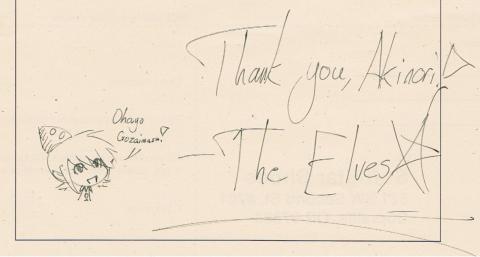 Thank you, Akinori!
Ohayo
Gozaimasu!
— The Elves